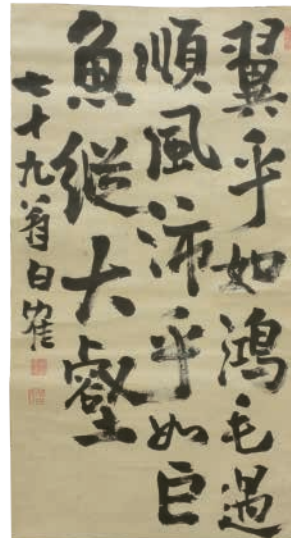 翼乎如鴻毛遇
順風沛乎如巨
魚縱大壑
七十九翁白寉